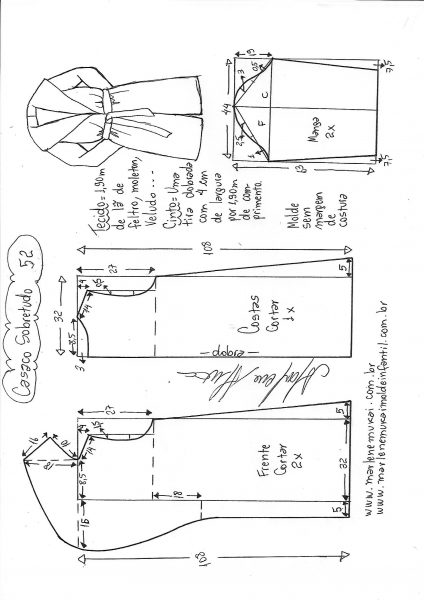 Casaco Sobretudo 52
Tecido = 1,90m
de lã de
feltro, moleton,
Veludo ...
Cinto = Uma
tira dobrada
com 4 cm
de largura
por 1,90m
de com-
primento.
Molde
sem
margem
de
costura
19
3
0,5
44
C
F
Manga
2x
2,5
1
63
7,5
7,5
108
27
4
14
32
8,5
3
5
Costas
Cortar
1x
dobra
27
4
14
16
10
8,5
18
16
Frente
Cortar
2x
5
32
5
108
www.marlenemukai.com.br
www.marlenemukaimoldeinfantil.com.br